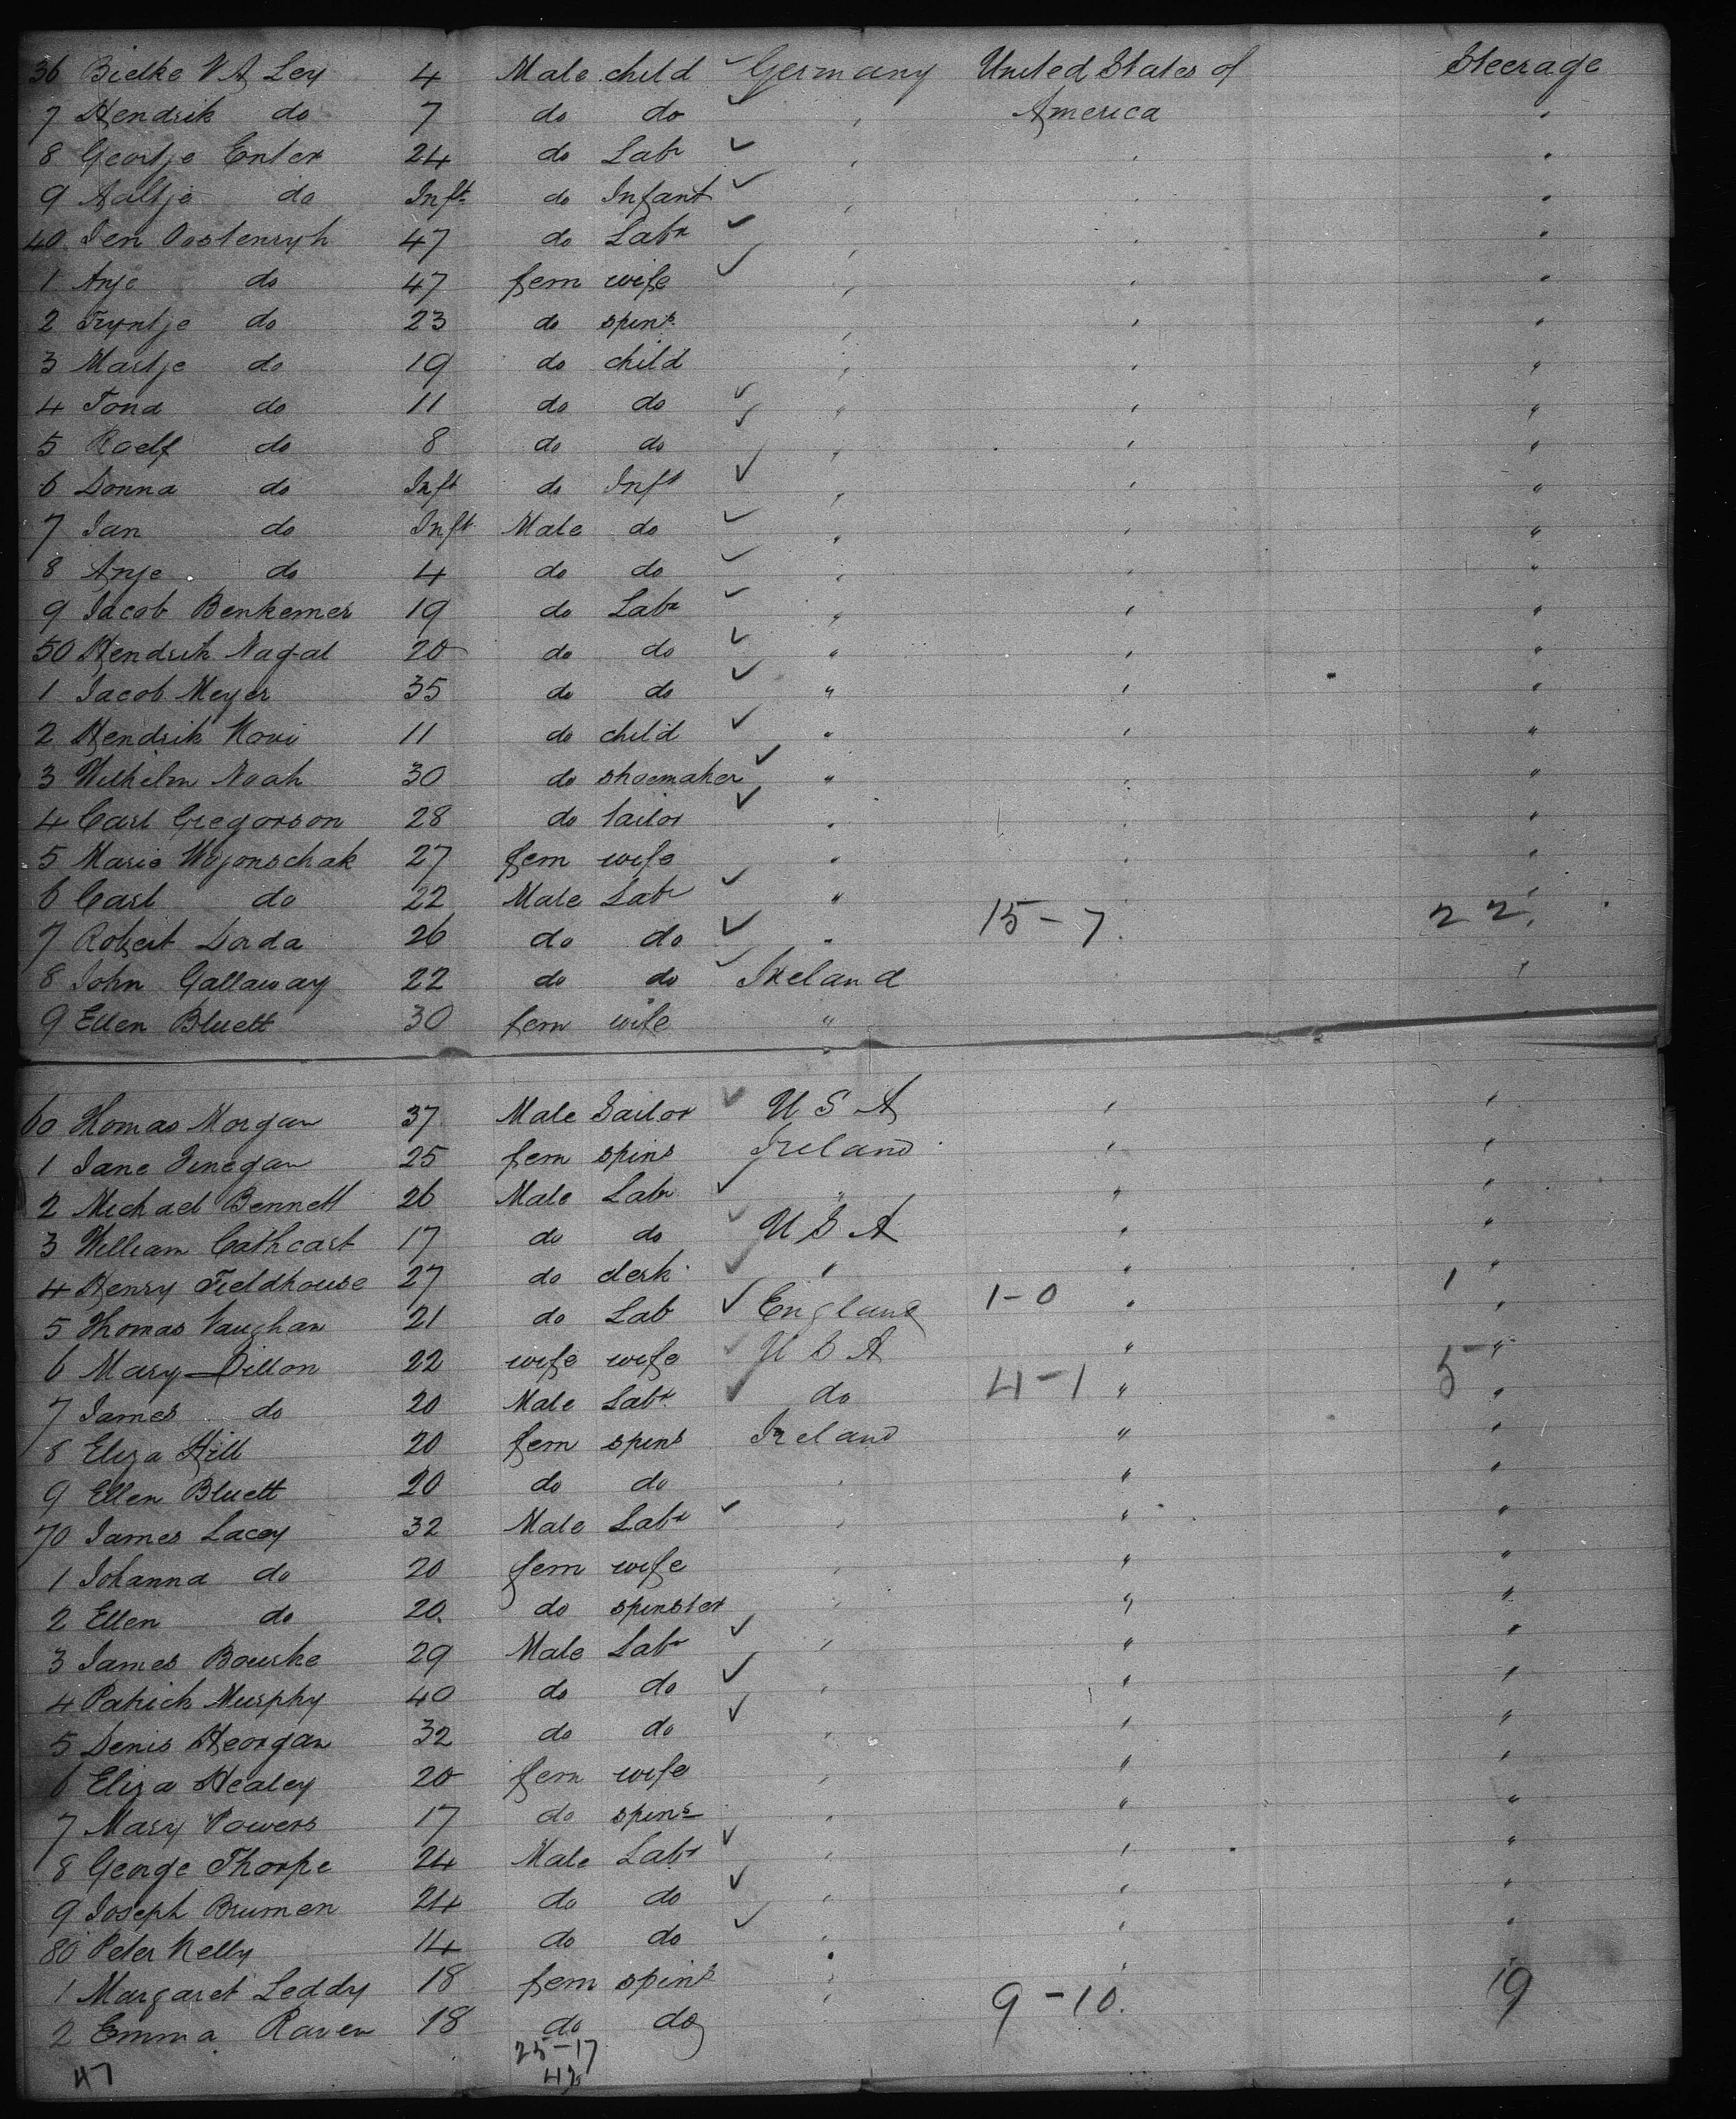 36 Bielke V A Ley 4 Male child ✓ Germany United States of Steerage
7 Hendrik do 7 do do ✓ " America "
8 Geertje Enter 24 do Labr ✓ " " "
9 Aaltje do Inft do Infant ✓ " " "
40 Jen Oostenryk 47 do Labr ✓ " " "
1 Anje do 47 fem wife ✓ " " "
2 Tryntje do 23 do spins " " "
3 Martje do 19 do child " " "
4 Tona do 11 do do ✓ " " "
5 Roelf do 8 do do ✓ " " "
6 Donna do Inft do Inft ✓ " " "
7 Jan do Inft Male do ✓ " " "
8 Anje do 4 do do ✓ " " "
9 Jacob Benkemer 19 do Labr ✓ " " "
50 Hendrik Nagal 20 do do ✓ " " "
1 Jacob Meyer 35 do do ✓ " " "
2 Hendrik 11 do child ✓ " " "
3 Wilhelm Noah 30 do shoemaker ✓ " " "
4 Carl Gregorson 28 do tailor ✓ " " "
5 Marie Wojonschak 27 fem wife " " "
6 Carl do 22 Male Labr ✓ " "
7 Robert Dorda 26 do do ✓ " 15-7 22
8 John Gallaway 22 do do ✓ Ireland "
9 Ellen Bluett 30 fem wife "
60 Thomas Morgan 37 Male Sailor ✓ U S A " "
1 Jane Finegan 25 fem spins Ireland " "
2 Michael Bennett 26 Male Labr ✓ " " "
3 William Cathcart 17 do do ✓ U S A " "
4 Henry Fieldhouse 27 do clerk ✓ " " "
5 Thomas Vaughan 21 do Lab ✓ England 1-0 " 1 "
6 Mary Dillon 22 wife wife ✓ U S A " "
7 James do 20 Male Labr ✓ do 4-1 " 5 "
8 Eliza Hill 20 fem spins Ireland " "
9 Ellen Bluett 20 do do " " "
70 James Lacey 32 Male Labr ✓ " " "
1 Johanna do 20 fem wife " " "
2 Ellen do 20 do spinster " " "
3 James Bourke 29 Male Labr ✓ " " "
4 Patrick Murphy 40 do do ✓ " " "
5 Denis Heorgan 32 do do ✓ " " "
6 Eliza Healey 20 fem wife " " "
7 Mary Powers 17 do spins " " "
8 George Thorpe 24 Male Labr ✓ " " "
9 Joseph Brumen 24 do do ✓ " " "
80 Peter Kelly 14 do do ✓ " " "
1 Margaret Leddy 18 fem spins " " "
2 Emma Raven 18 do do 9-10. 19
47 25-17
42